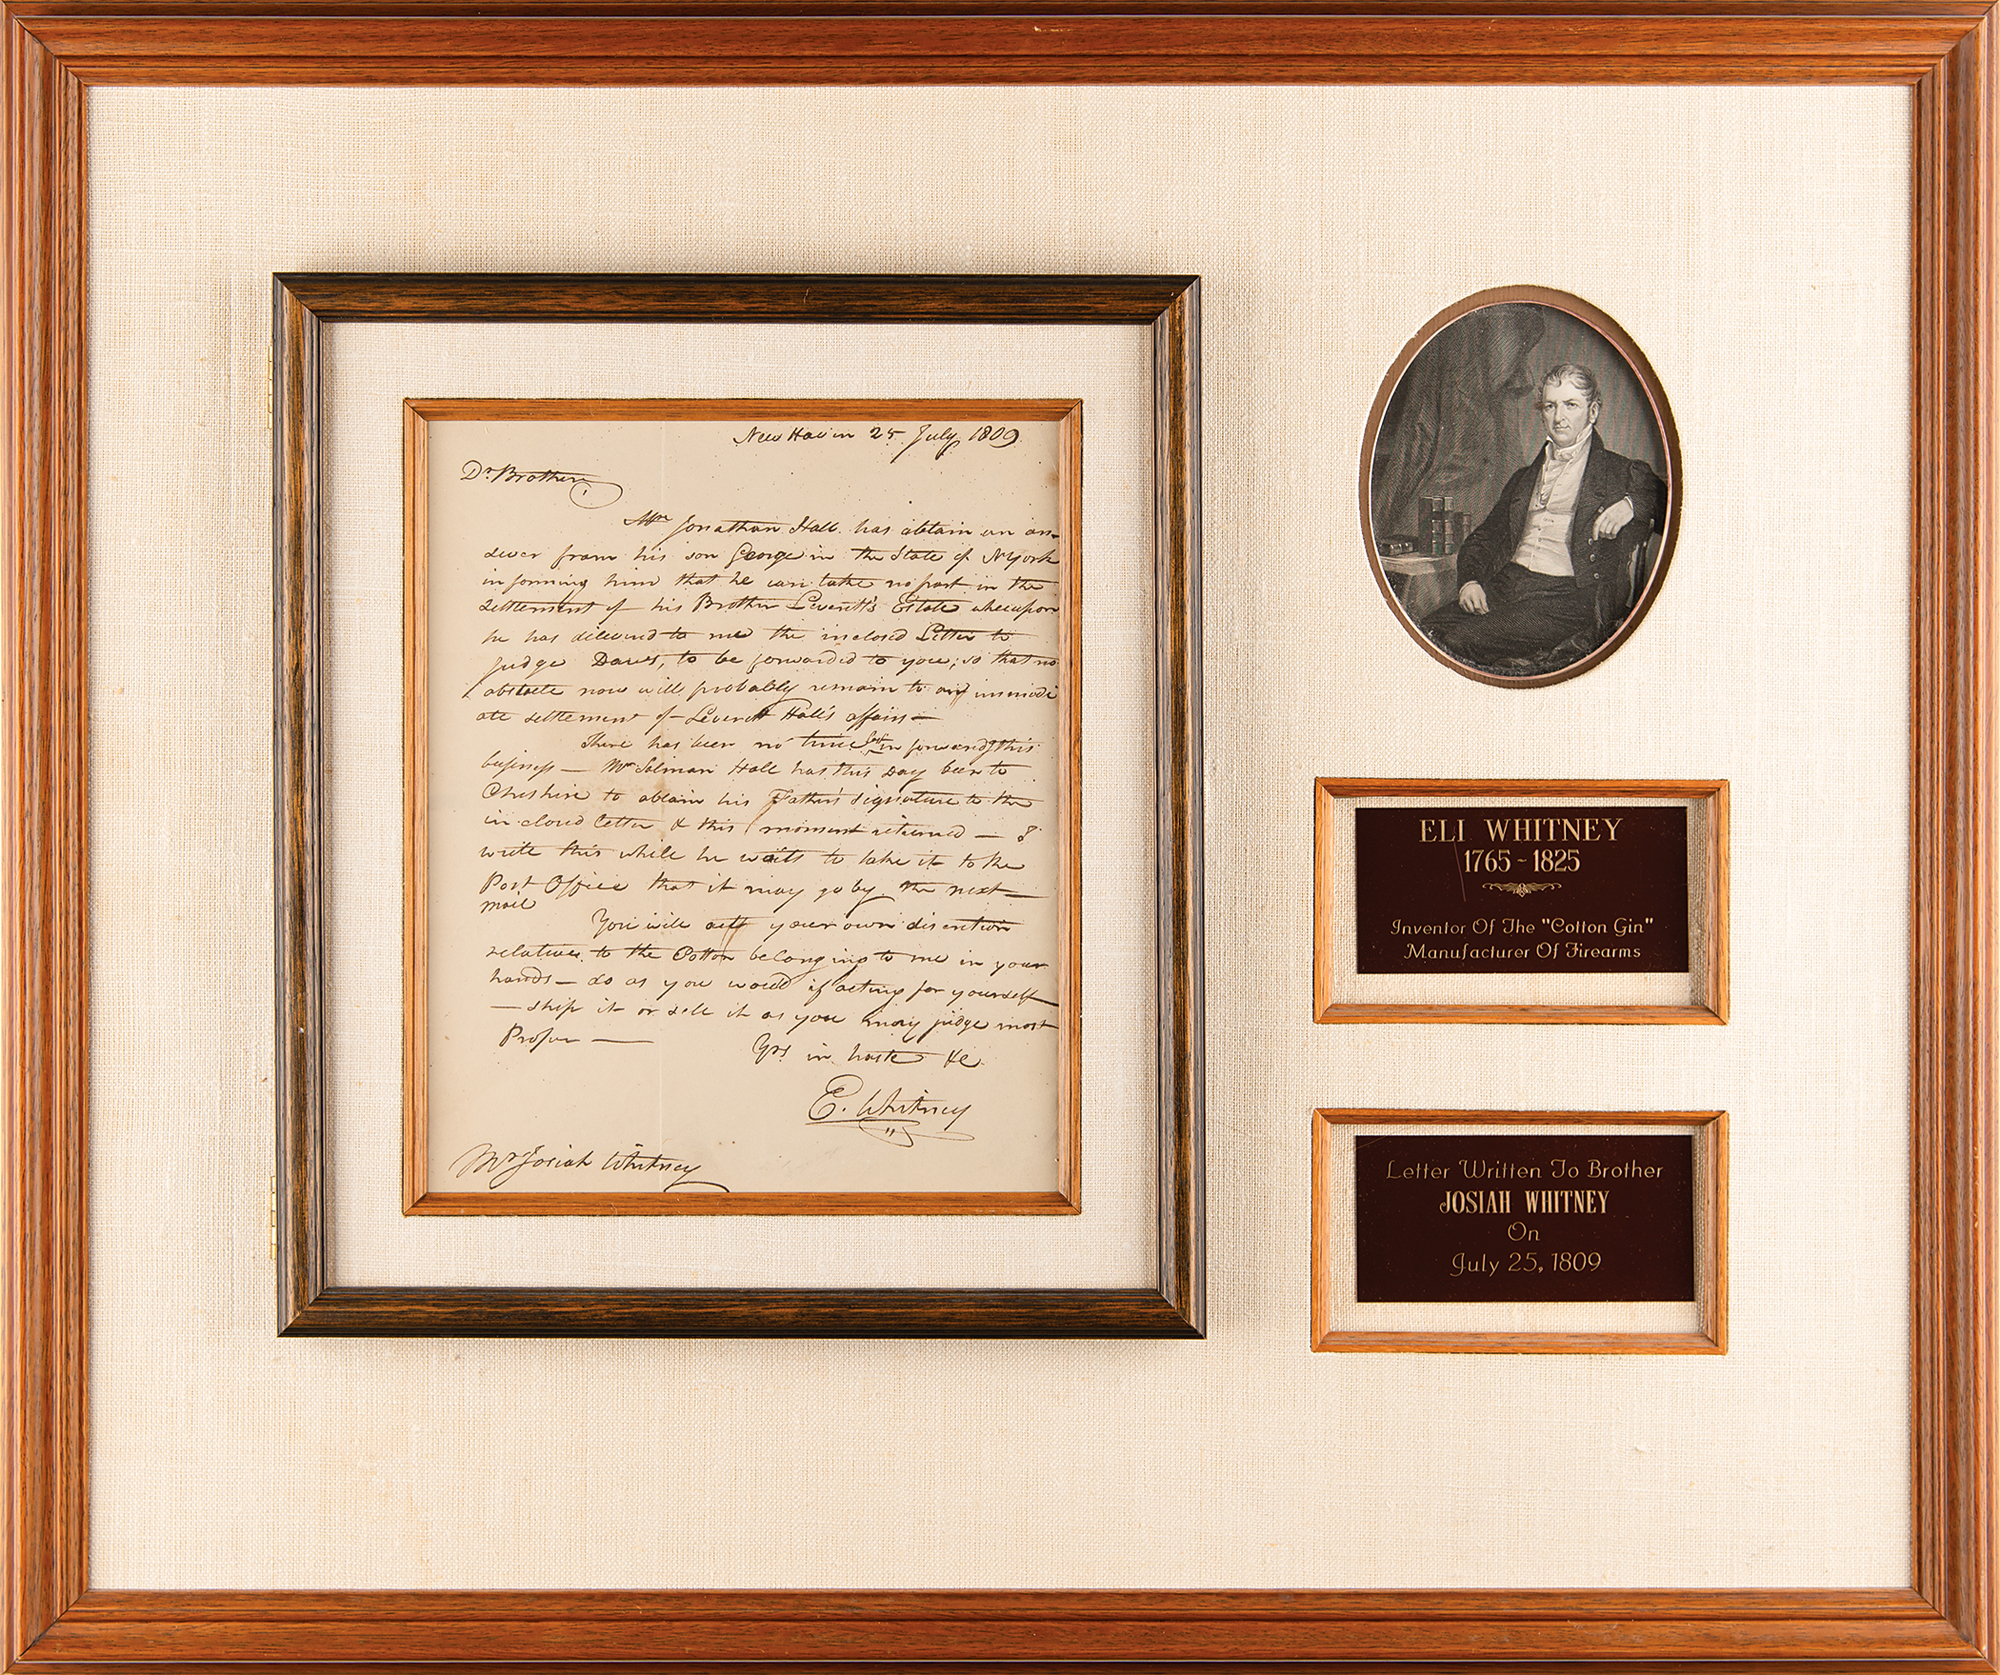 New Haven 25 July 1809
Dr Brother
Mr Jonathan Hall has obtain an an-
swer from his son George in the State of NYork
informing him that he can take no part in the
settlement of his Brother Leverett's Estate whereupon
he has delivered to me the inclosed Letter to
Judge to be forwarded to you; so that no
obstacle now will probably remain to any immedi
ate settlement of Leverett Hall's affairs—
There has been no time lost in forwardg this
business — Mr Salmon Hall has this day been to
Cheshire to obtain his Father's signature to the
inclosed letter & this moment returned — I
write this while he waits to take it to the
Post Office that it may go by the next
mail
You will your own discretion
relative to the Cotton belonging to me in your
hands — do as you would if acting for yourself
— ship it or sell it as you may judge most
Proper —
Yrs in haste &c
E. Whitney
Mr Josiah Whitney
ELI WHITNEY
1765 ~ 1825
Inventor Of The "Cotton Gin"
Manufacturer Of Firearms
Letter Written To Brother
JOSIAH WHITNEY
On
July 25, 1809